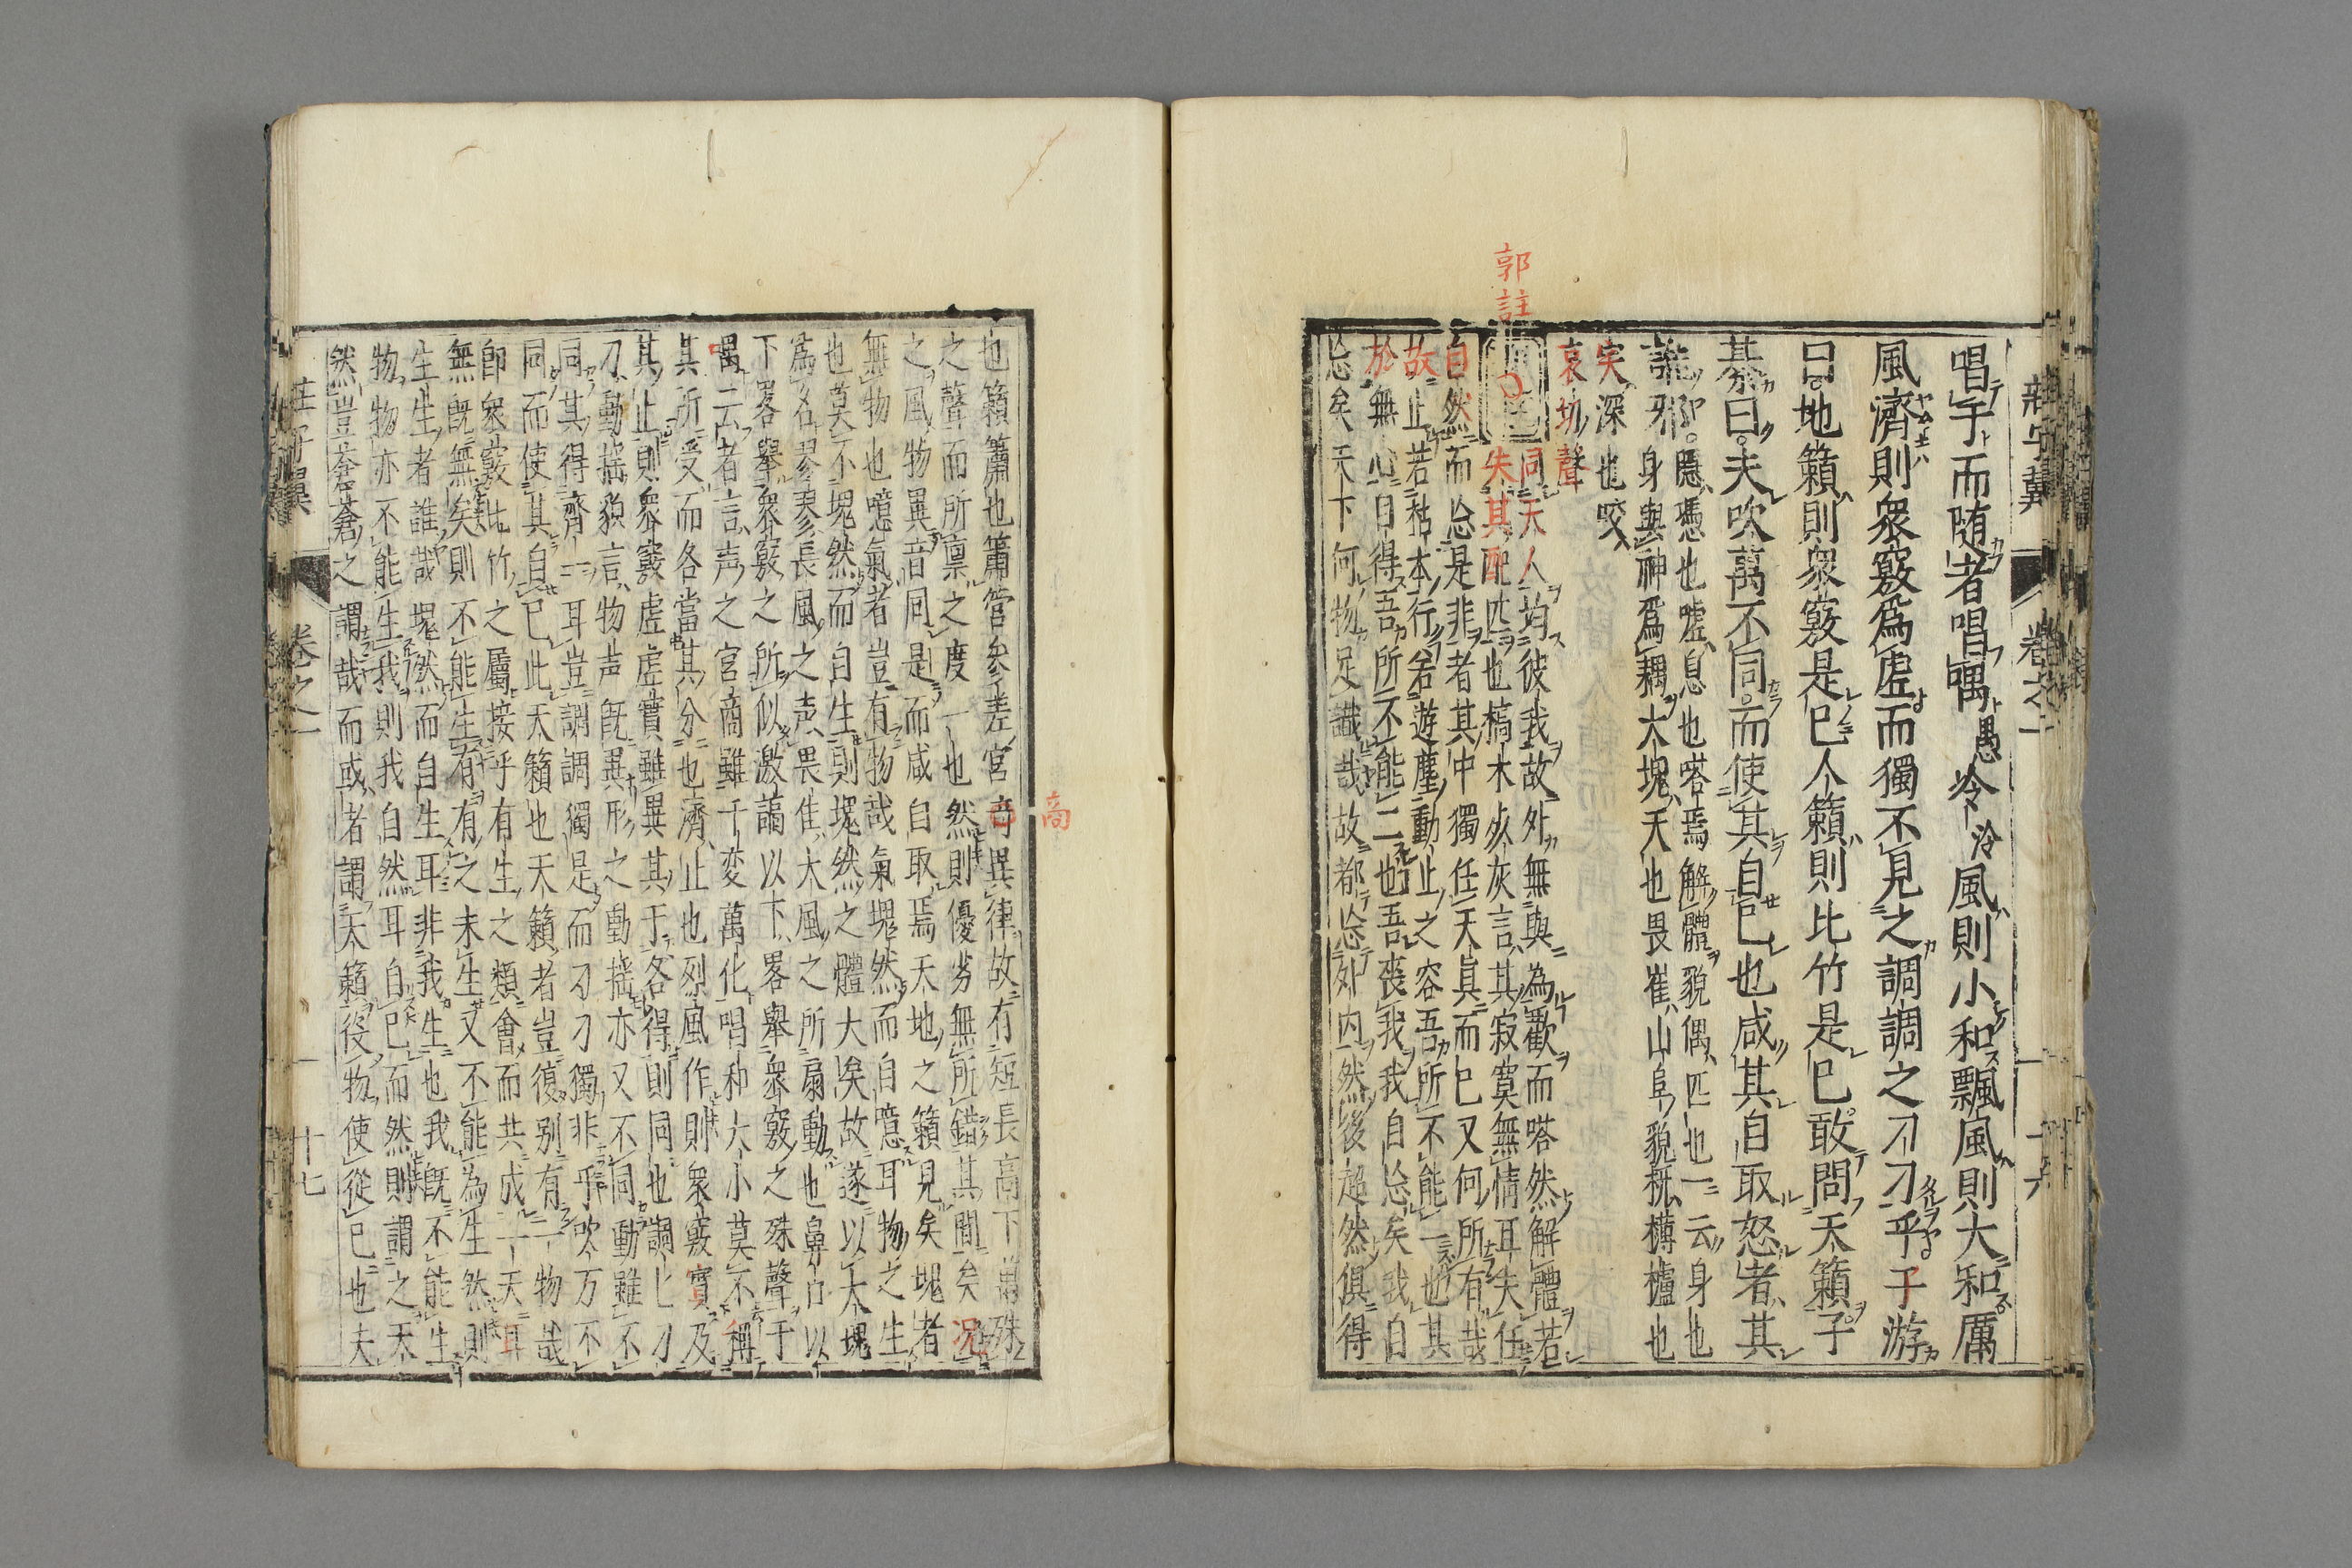 莊子翼 卷之一 十六
唱于而随者唱喁愚泠泠風則小和飄風則大和厲
風濟則衆竅爲虛而獨不見之調調之刁刁乎子游
曰地籟則衆竅是已人籟則比竹是已敢問天籟子
綦曰夫吹萬不同而使其自已也咸其自取怒者其
誰邪隱憑也嘘息也嗒焉解體貌偶匹也一云身也
身與神爲耦大塊天也畏崔山阜貌枅欂櫨也
宎深也咬
哀切聲
郭註
同天人均彼我故外無與為歡而嗒然解體若
失其配匹也槁木死灰言其寂寞無情耳夫任
自然而忘是非者其中獨任天真而已又何所有哉
故止若枯木行若遊塵動止之容吾所不能一也其
於無心自得吾所不能二也吾喪我我自忘矣我自
忘矣天下何物足識哉故都忘外内然後超然俱得
也籟簫也簫管參差宮商異律故有短長高下萬殊
商
之聲而所禀之度一也然則優劣無所錯其間矣况
之風物異音同是而咸自取焉天地之籟見矣塊者
無物也噫氣者豈有物哉氣塊然而自噫耳物之生
也莫不塊然而自生則塊然之體大矣故遂以大塊
爲名翏翏長風之声畏佳大風之所扇動也鼻口以
下畧舉衆竅之所似激謞以下畧舉衆竅之殊聲于
喁云者言声之宮商雖千変萬化唱和大小莫不稱
其所受而各當其分也濟止也烈風作則衆竅實及
其止則衆竅虛虛實雖異其于各得則同也調匕刁
刁動揺貌言物声既異形之動揺亦又不同動雖不
同其得齊一耳豈調調獨是而刁刁獨非乎吹万不
同而使其自已此天籟也天籟者豈復别有一物哉
即衆竅比竹之屬接乎有生之類會而共成一天耳
無既無矣則不能生有有之未生又不能為生然則
生生者誰哉塊然而自生耳非我生也我既不能生
物物亦不能生我則我自然耳自已而然則謂之天
然豈蒼蒼之謂哉而或者謂天籟役物使從已也夫
莊子翼 卷之一 十七